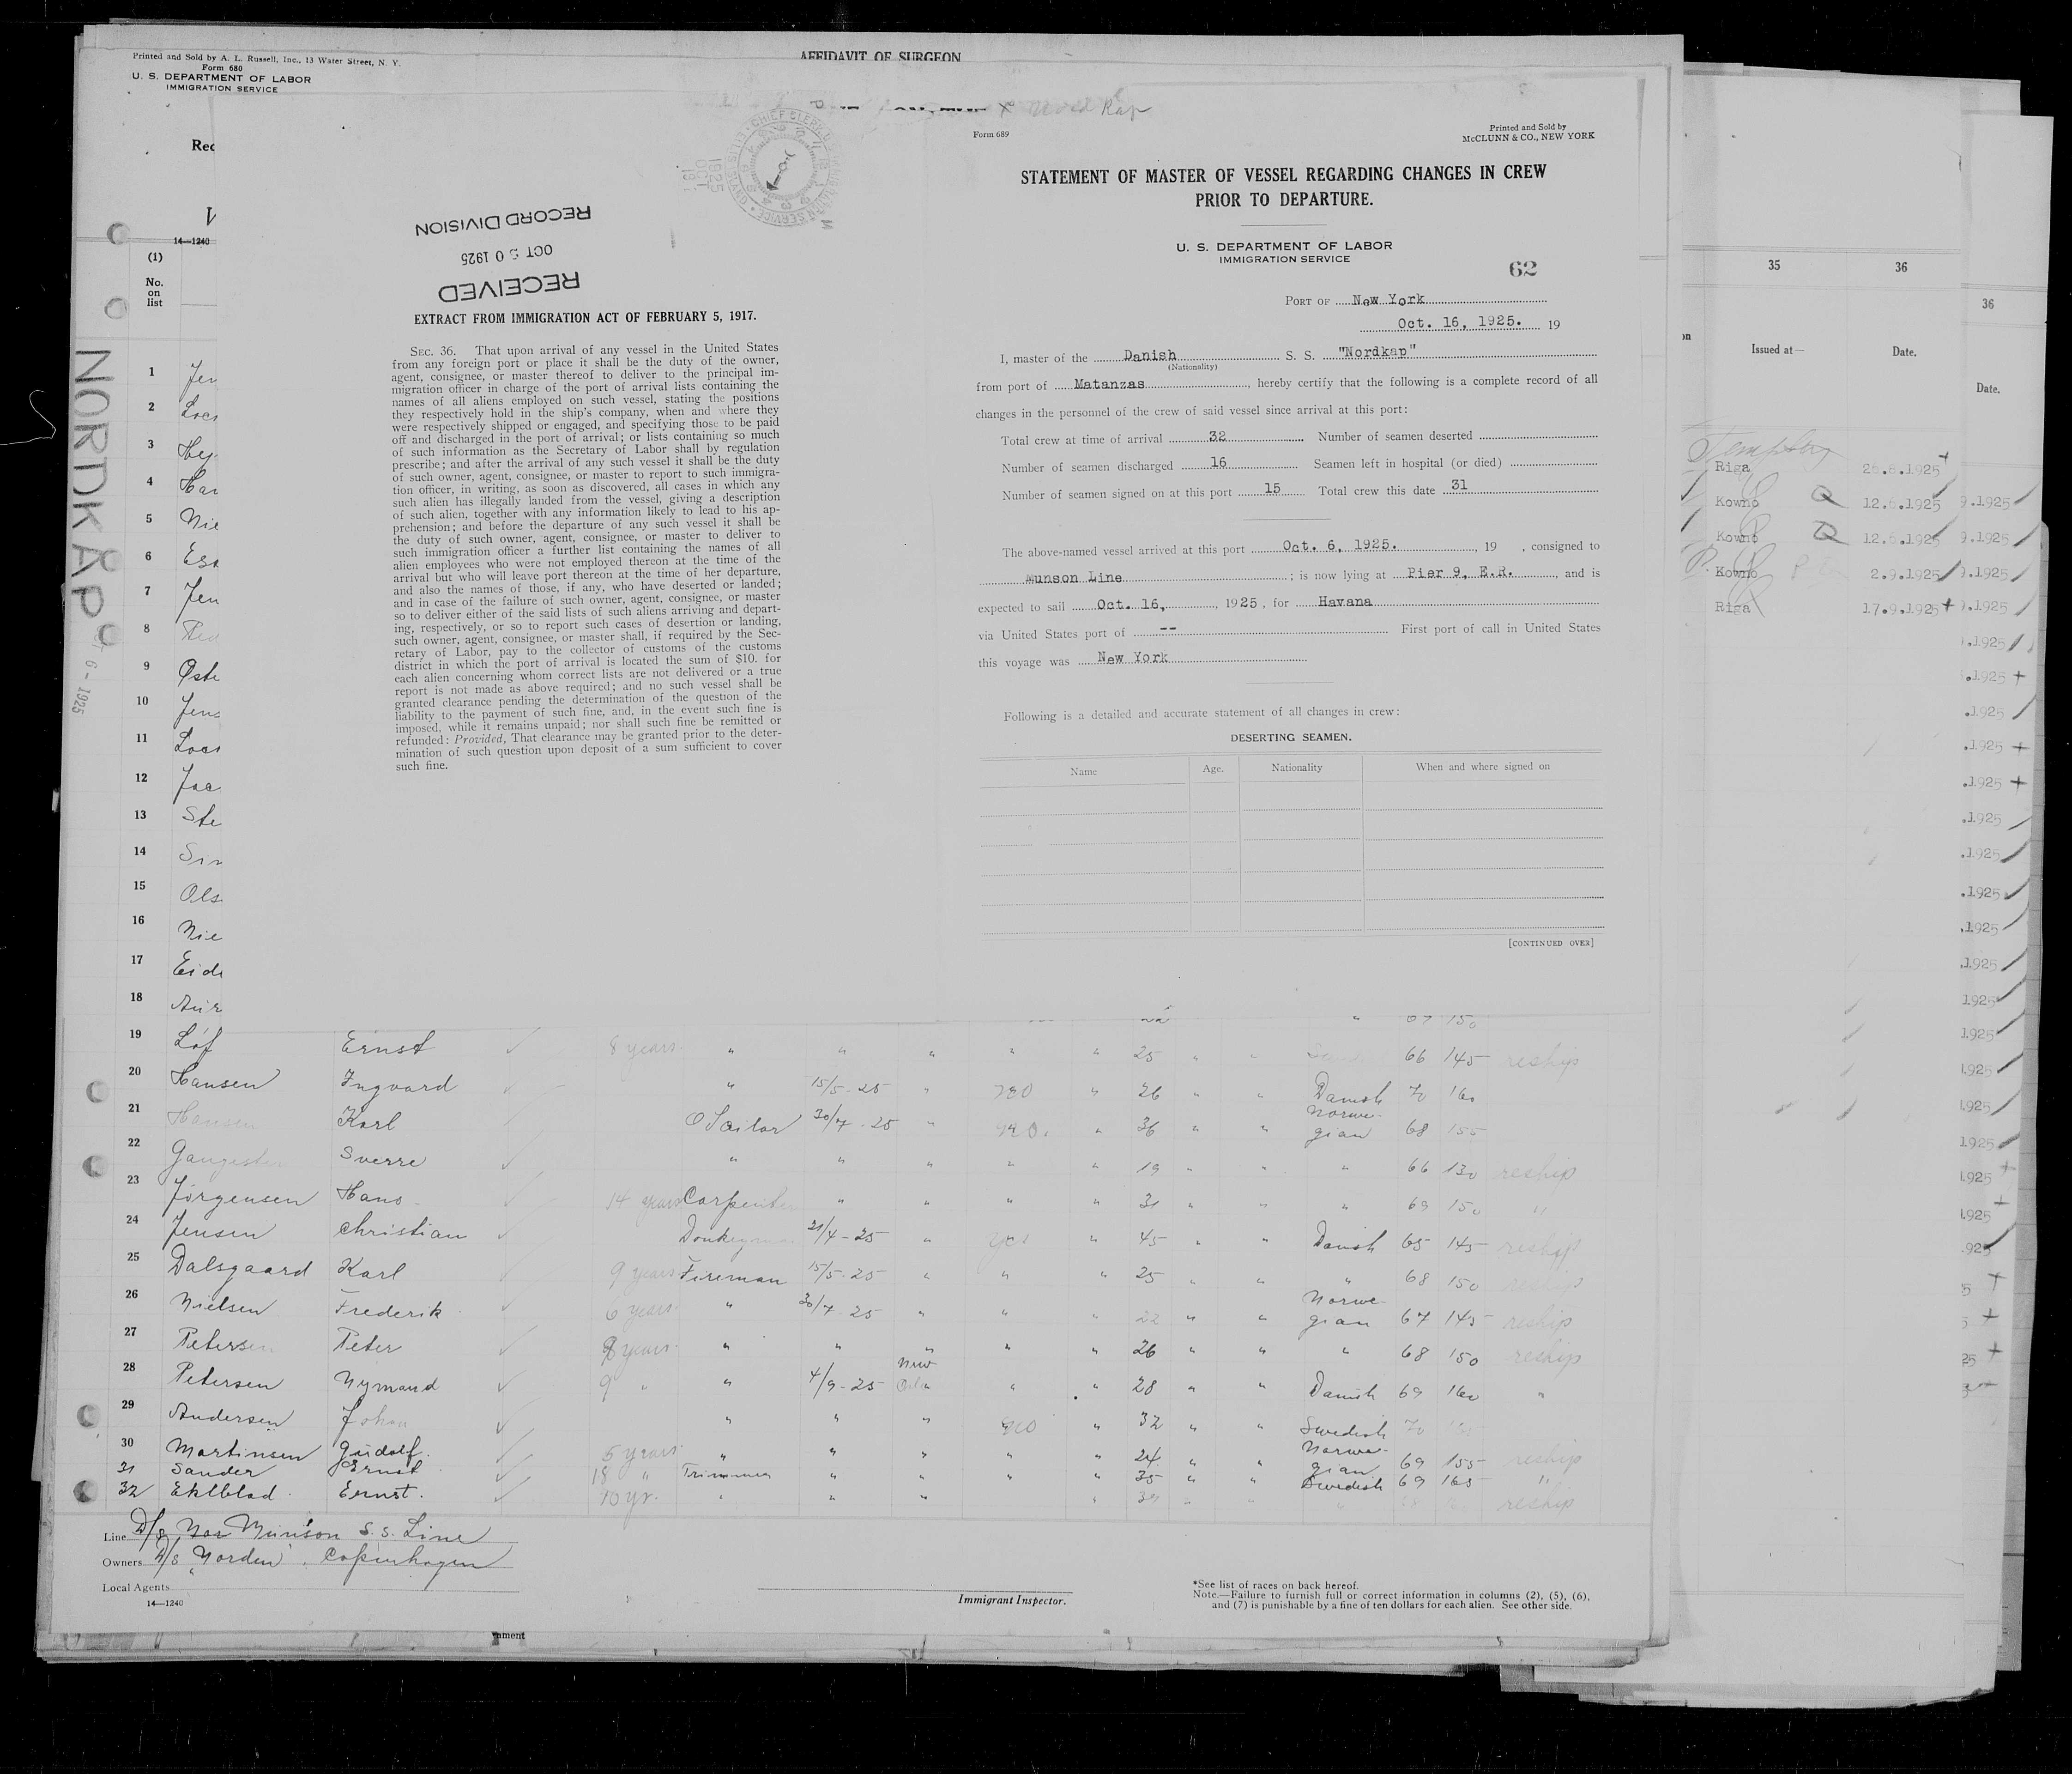 Printed and Sold by A. L. Russell, Inc., 13 Water Street, N. Y.
Form 680
U. S. DEPARTMENT OF LABOR
IMMIGRATION SERVICE
AFFIDAVIT OF SURGEON
Rec
14—1240
(1)
No. on list
NORDKAP
6 - 1925
RECORD DIVISION
OCT 5 0 1925
RECEIVED
EXTRACT FROM IMMIGRATION ACT OF FEBRUARY 5, 1917.
SEC. 36. That upon arrival of any vessel in the United States
from any foreign port or place it shall be the duty of the owner,
agent, consignee, or master thereof to deliver to the principal im-
migration officer in charge of the port of arrival lists containing the
names of all aliens employed on such vessel, stating the positions
they respectively hold in the ship's company, when and where they
were respectively shipped or engaged, and specifying those to be paid
off and discharged in the port of arrival; or lists containing so much
of such information as the Secretary of Labor shall by regulation
prescribe; and after the arrival of any such vessel it shall be the duty
of such owner, agent, consignee, or master to report to such immigra-
tion officer, in writing, as soon as discovered, all cases in which any
such alien has illegally landed from the vessel, giving a description
of such alien, together with any information likely to lead to his ap-
prehension; and before the departure of any such vessel it shall be
the duty of such owner, agent, consignee, or master to deliver to
such immigration officer a further list containing the names of all
alien employees who were not employed thereon at the time of the
arrival but who will leave port thereon at the time of her departure,
and also the names of those, if any, who have deserted or landed;
and in case of the failure of such owner, agent, consignee, or master
so to deliver either of the said lists of such aliens arriving and depart-
ing, respectively, or so to report such cases of desertion or landing,
such owner, agent, consignee, or master shall, if required by the Sec-
retary of Labor, pay to the collector of customs of the customs
district in which the port of arrival is located the sum of $10. for
each alien concerning whom correct lists are not delivered or a true
report is not made as above required; and no such vessel shall be
granted clearance pending the determination of the question of the
liability to the payment of such fine, and, in the event such fine is
imposed, while it remains unpaid; nor shall such fine be remitted or
refunded: Provided, That clearance may be granted prior to the deter-
mination of such question upon deposit of a sum sufficient to cover
such fine.
Form 689
Printed and Sold by
McCLUNN & CO., NEW YORK
STATEMENT OF MASTER OF VESSEL REGARDING CHANGES IN CREW
PRIOR TO DEPARTURE.
U. S. DEPARTMENT OF LABOR
IMMIGRATION SERVICE
62
PORT OF New York
Oct. 16, 1925. 19
I, master of the Danish S. S. "Nordkap"
(Nationality)
from port of Matanzas, hereby certify that the following is a complete record of all
changes in the personnel of the crew of said vessel since arrival at this port:
Total crew at time of arrival 32 Number of seamen deserted
Number of seamen discharged 16 Seamen left in hospital (or died)
Number of seamen signed on at this port 15 Total crew this date 31
The above-named vessel arrived at this port Oct. 6, 1925., 19 , consigned to
Munson Line; is now lying at Pier 9, E.R., and is
expected to sail Oct. 16, , 1925, for Havana
via United States port of -- First port of call in United States
this voyage was New York
Following is a detailed and accurate statement of all changes in crew:
DESERTING SEAMEN.
Name Age. Nationality When and where signed on
[CONTINUED OVER]
35 36
Issued at— Date.
Riga 26.8.1925
Kowno 12.6.1925
Kowno 12.6.1925
Kowno 2.9.1925
Riga 17.9.1925
36
Date.
1 Jen
2
3
4 Han
5 Nie
6
7 Jen
8
9 Oste
10 Jens
11
12
13 Ste
14
15 Ols
16 Nie
17 Eide
18
19 Löf Ernst 8 years " " " " " 25 " " 66 145 reship
20 Hansen Ingvard " 15/5-25 " " 26 " " Danish 70 160
21 Hansen Karl O Sailor 30/7-25 " " 36 " " Norwegian 68 155
22 Sverre " " " " " 19 " " " 66 130 reship
23 Jørgensen Hans 14 years Carpenter " " " " 31 " " " 69 150 "
24 Jensen Christian Donkeyman 21/4-25 " yes " 45 " " Danish 65 145 reship
25 Dalsgaard Karl 9 years Fireman 15/5-25 " " " 25 " " " 68 150 reship
26 Nielsen Frederik 6 years " 30/7-25 " " " 22 " " Norwegian 67 145 reship
27 Petersen Peter 8 years " " " " " 26 " " " 68 150 reship
28 Petersen Nymand 9 " " 4/9-25 " " 28 " " Danish 69 160 "
29 Andersen Johan " " " " 32 " " Swedish 70
30 Martinsen Gudolf 5 years " " " " " 24 " " Norwegian 69 155 reship
31 Sander Ernst 18 " Trimmer " " " " 35 " " Swedish 69 165 "
32 Eklblad Ernst. 10 yr. " " " " reship
Line D/S Munson S.S. Line
Owners D/S "Norden", Copenhagen
Local Agents
14—1240
Immigrant Inspector.
*See list of races on back hereof.
Note.—Failure to furnish full or correct information in columns (2), (5), (6),
and (7) is punishable by a fine of ten dollars for each alien. See other side.